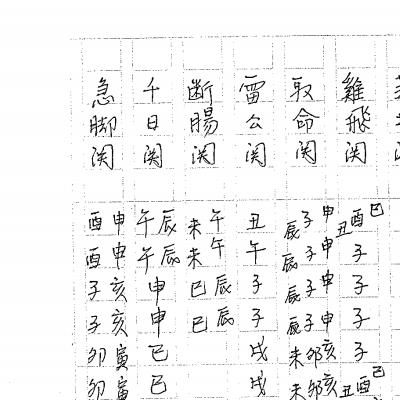 雞飛関
巳酉丑
子
子
子
子
巳酉丑
取命関
申子辰
申子辰
申子辰
申子辰
亥卯未
亥卯未
雷公関
丑
午
子
子
戌
戌
断腸関
午未
午未
辰巳
辰巳
千日関
辰午
辰午
申
申
巳
巳
急脚関
申酉
申酉
亥子
亥子
寅卯
寅卯